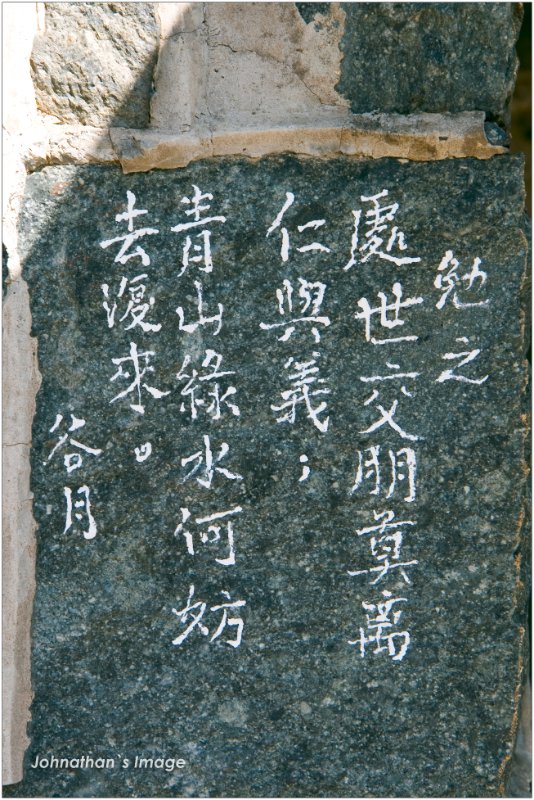 勉之
處世交朋莫离
仁與義；
青山綠水何妨
去復來。
谷月
Johnathan`s Image